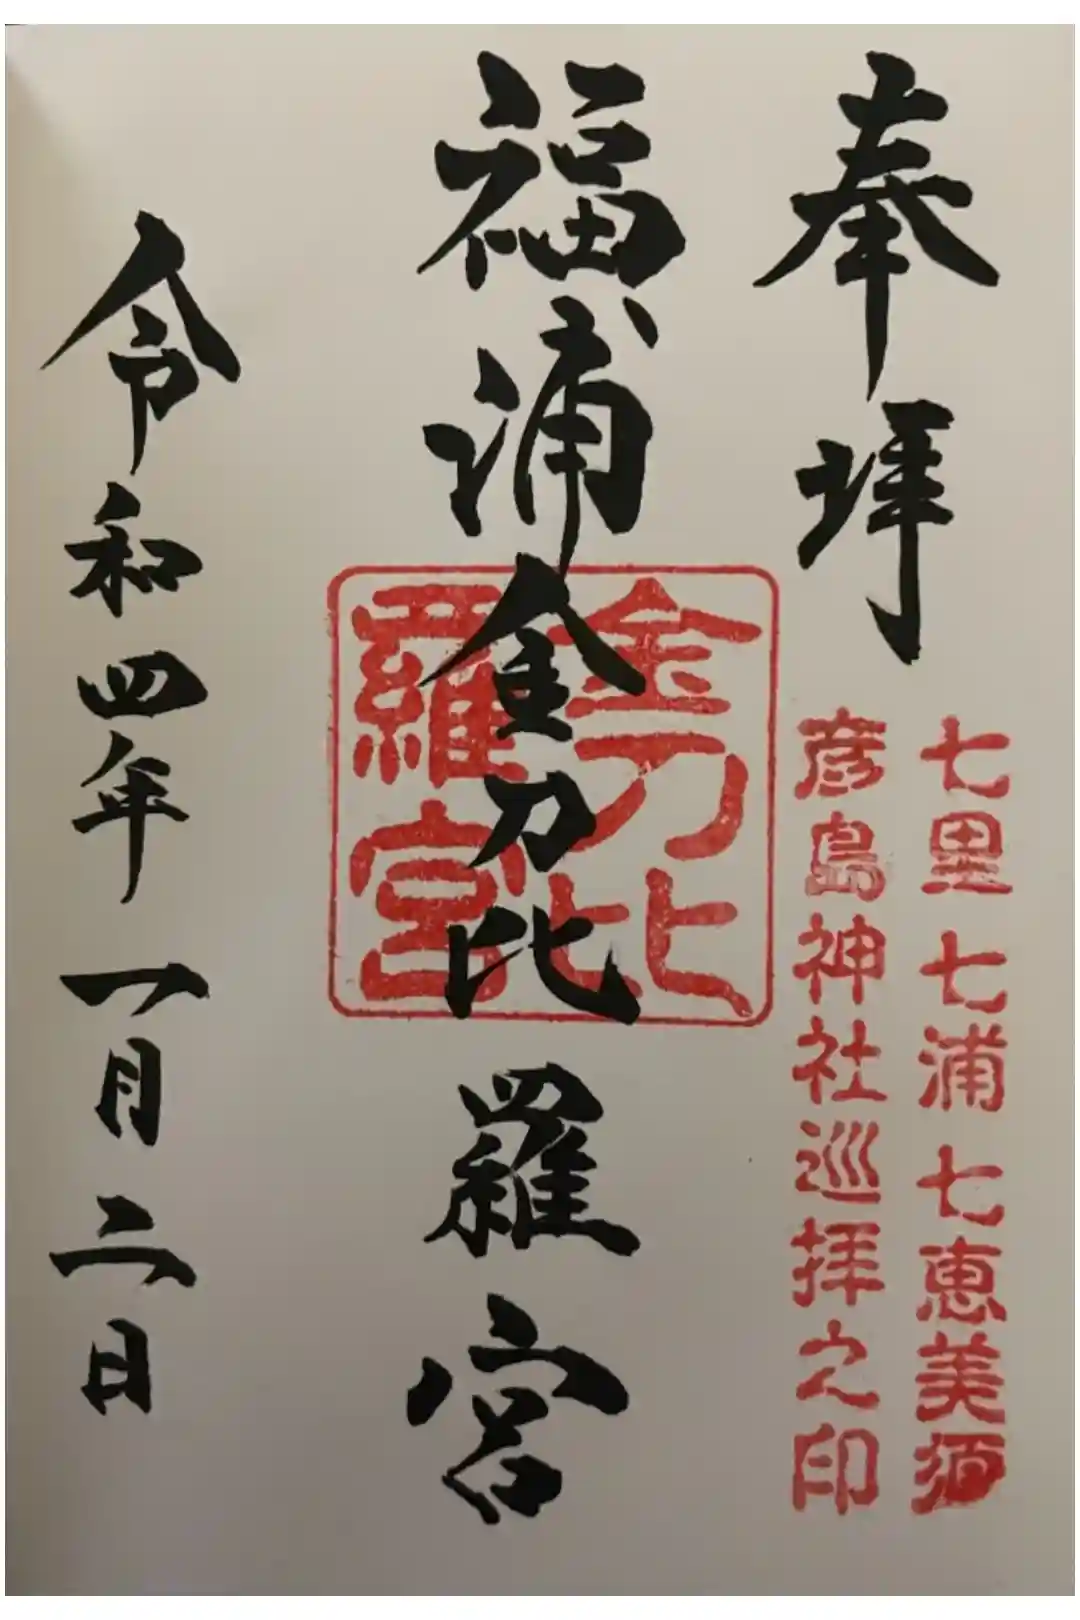 奉拝
七里七浦七恵美須
彦島神社巡拝之印
福浦金刀比羅宮
金刀比
羅宮
令和四年一月二日